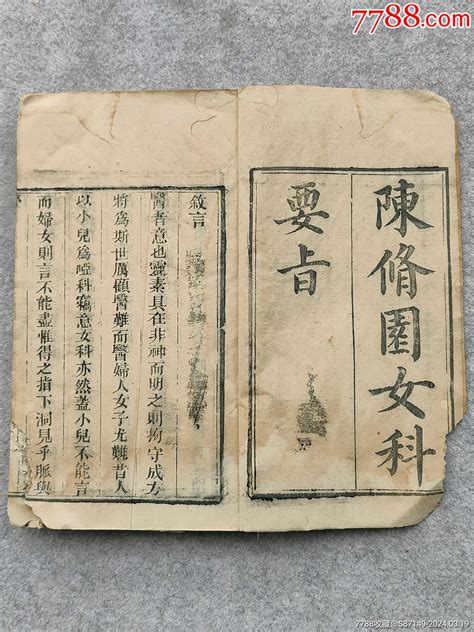 7788.com
陳脩園女科
要旨
敘言
醫者意也靈素具在非神而明之則拘守成方
將為斯世厲顧醫難而醫婦人女子尤難昔人
以小兒為啞科竊意女科亦然蓋小兒不能言
而婦女則言不能盡惟得之指下洞見乎脈與
7788收藏@S87149-2024.03.19